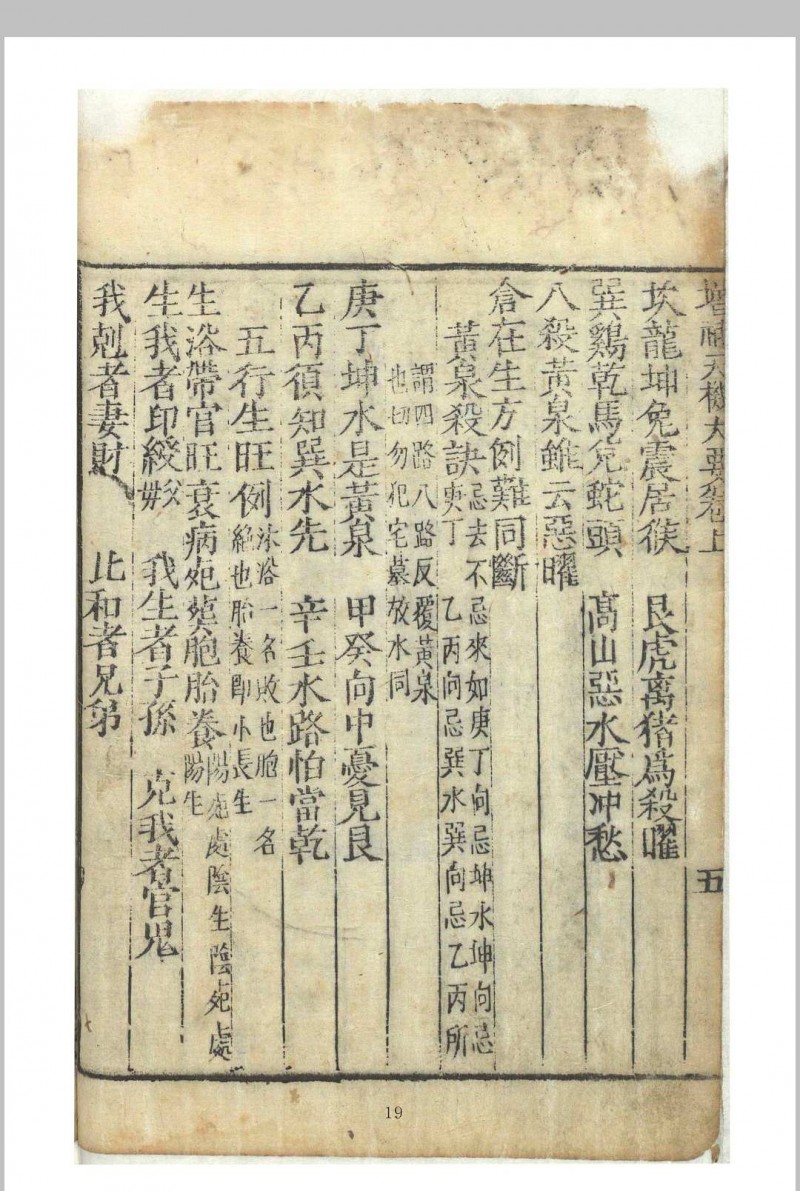 增補天機大要卷上 五
坎龍坤兔震居猴 艮虎离猪爲殺曜
巽鷄乾馬兌蛇頭 高山惡水壓冲愁
八殺黃泉雖云惡曜
倉在生方例難同斷
黃泉殺訣忌去不忌來如庚丁向忌坤水坤向忌
庚丁 乙丙向忌巽水巽向忌乙丙所
謂四路八路反覆黃泉
也切勿犯宅墓放水同
庚丁坤水是黃泉 甲癸向中憂見艮
乙丙須知巽水先 辛壬水路怕當乾
五行生旺例沐浴一名敗也胞一名
絶也胎養即小長生
生浴帶官旺衰病死葬胞胎養陽死處陰生陰死處
陽生
生我者印綬父母 我生者子孫 克我者官鬼
我剋者妻財 比和者兄弟
19